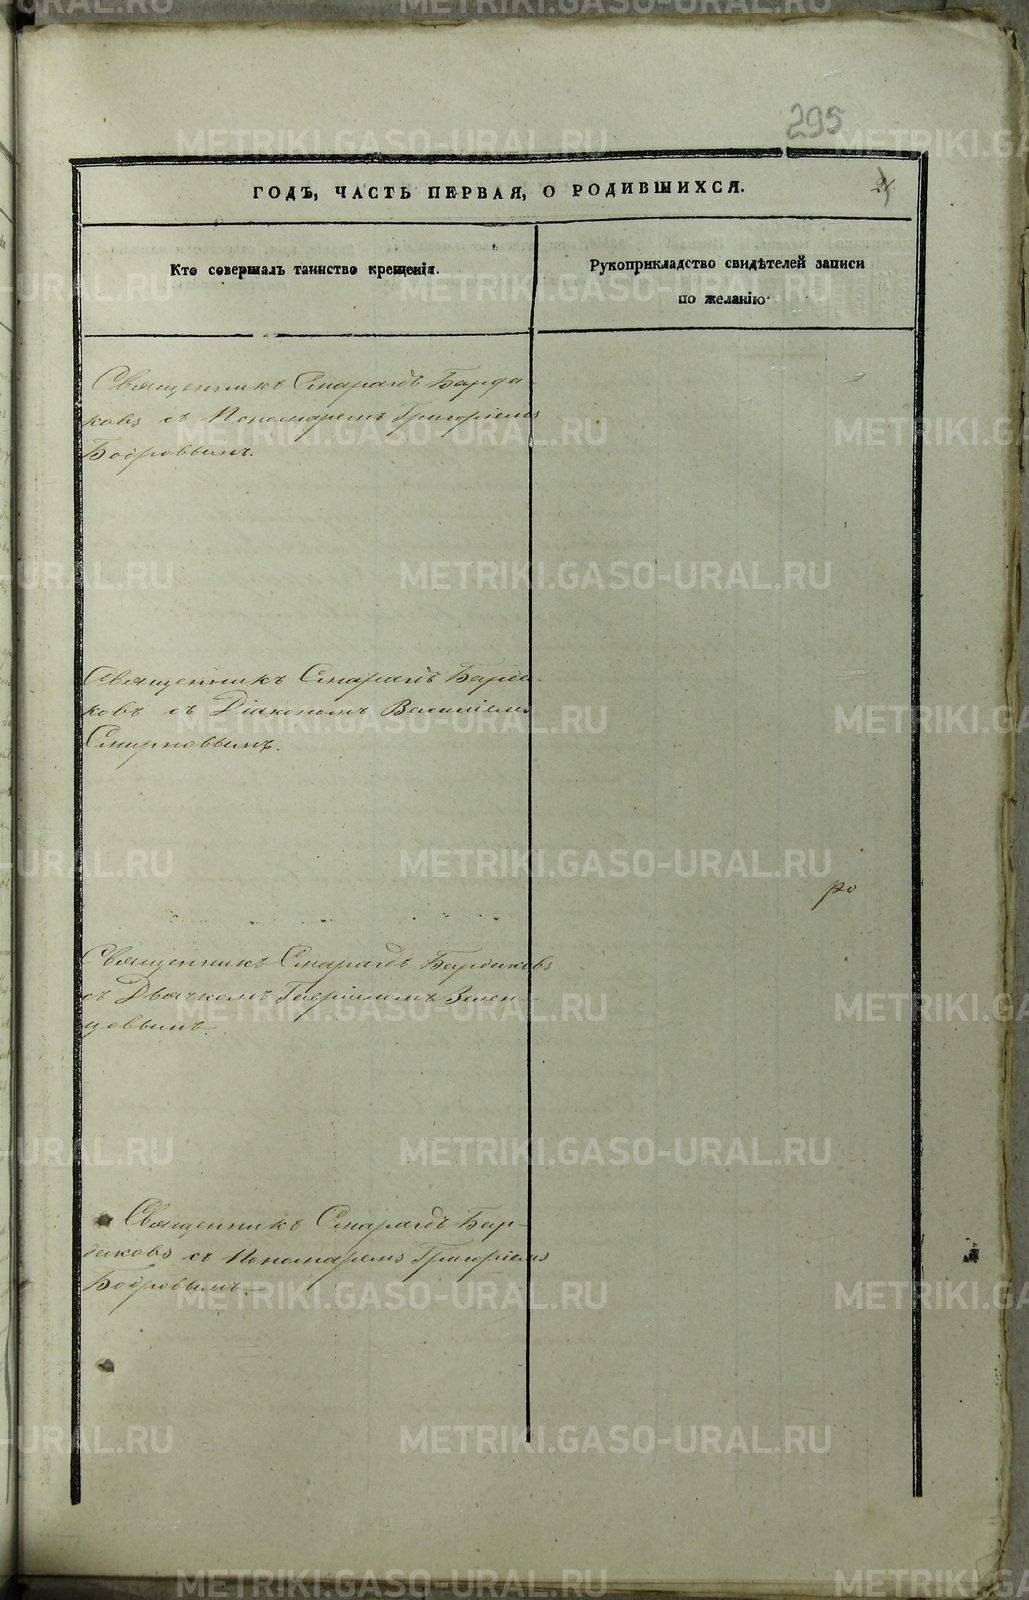 295
ГОДЪ, ЧАСТЬ ПЕРВАЯ, О РОДИВШИХСЯ.
21
Кто совершалъ таинство крещенія.
Рукоприкладство свидѣтелей записи
по желанію
Священникъ Смарагдъ Барда-
ковъ съ Пономаремъ Григоріемъ
Бобровымъ.
Священникъ Смарагдъ Барда-
ковъ съ Діакономъ Василіемъ
Смирновымъ.
Священникъ Смарагдъ Бардаковъ
съ Дьячкомъ Гавріиломъ
Священникъ Смарагдъ Бар-
даковъ съ Пономаремъ Григоріемъ
Бобровымъ.
METRIKI.GASO-URAL.RU